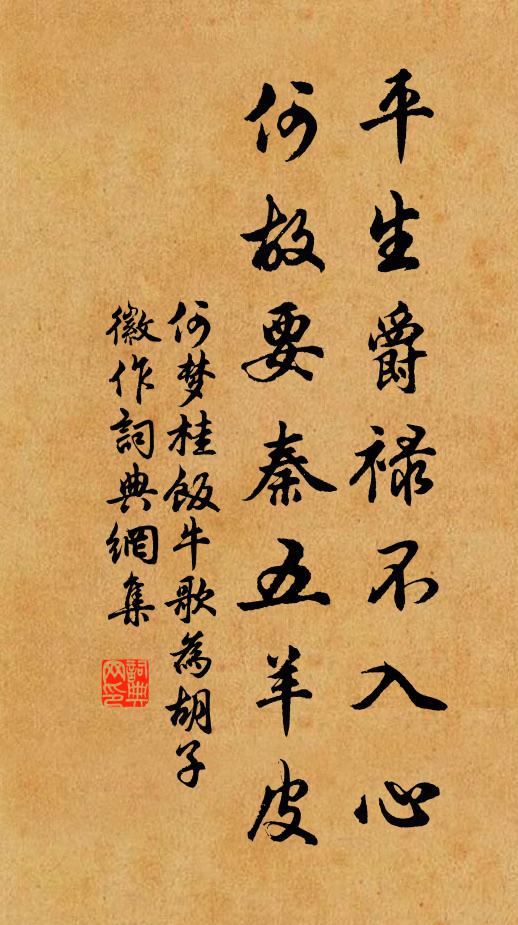 平生爵禄不入心
何故要秦五羊皮
何梦桂飯牛歌為胡子
徽作詞典網集
詞典
网印